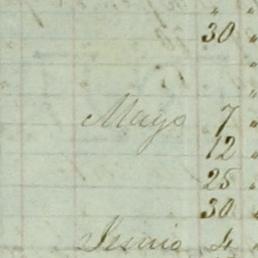 " "
30 "
Mayo 7 "
12 "
25 "
30
Junio 4 "